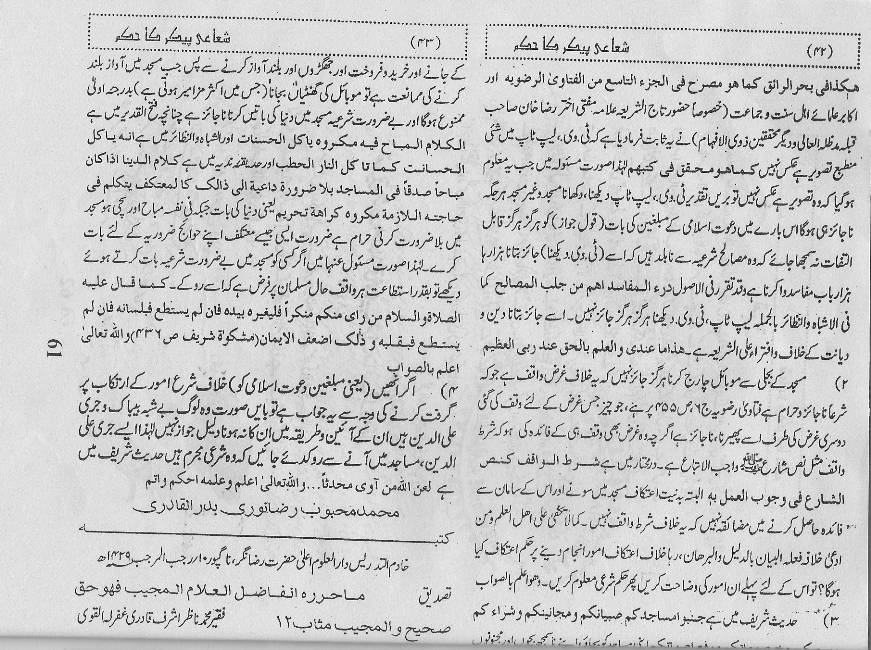 (۴۲) شعاعی پیکر کا حکم
ھکذا فی بحر الرائق کما ھو مصرح فی الجزء التاسع من الفتاویٰ الرضویہ اور
اکابر علمائے اہل سنت و جماعت (خصوصاً حضور تاج الشریعہ علامہ مفتی اختر رضا خان صاحب
قبلہ مدظلہ العالی و دیگر محققین ذوی الافہام) نے یہ ثابت فرما دیا ہے کہ ٹی۔وی،لیپ ٹاپ میں شئی
منطبع تصویر ہے عکس نہیں کما ھو محقق فی کتبھم لہٰذا صورت مسئولہ میں جب یہ معلوم
ہو گیا کہ وہ تصویر ہے عکس نہیں تو بریں تقدیر ٹی۔وی،لیپ ٹاپ دیکھنا،دکھانا مسجد و غیر مسجد ہر جگہ
ناجائز ہی ہوگا اس بارے میں دعوت اسلامی کے مبلغین کی بات (قول جواز) کو ہرگز ہرگز قابل
التفات نہ سمجھا جائے کہ وہ مصالح شرعیہ سے نابلد ہیں کہ اسے (ٹی۔وی۔دیکھنا) جائز بتانا ہزارہا
ہزار باب مفاسد وا کرنا ہے وقد تقرر فی الاصول درء المفاسد اھم من جلب المصالح کما
فی الاشباہ والنظائر بالجملہ لیپ ٹاپ،ٹی۔وی۔دیکھنا ہرگز ہرگز جائز نہیں۔اسے جائز بتانا دین و
دیانت کے خلاف و افتراء علی الشریعہ ہے۔ھذا ما عندی و العلم بالحق عند ربی العظیم
۲) مسجد کے بجلی سے موبائل چارج کرنا ہرگز جائز نہیں کہ یہ خلاف غرض واقف ہے جو کہ
شرعاً ناجائز و حرام ہے فتاویٰ رضویہ ج۶ ص ۴۵۵ پر ہے،جو چیز جس غرض کے لئے وقف کی گئی
دوسری غرض کی طرف اسے پھیرنا،ناجائز ہے اگرچہ وہ غرض بھی وقف ہی کے فائدہ کی ہو کہ شرط
واقف مثل نص شارع ﷺ واجب الاتباع ہے۔درمختار میں ہے شرط الواقف کنص
الشارع فی وجوب العمل بہ البتہ بہ نیت اعتکاف مسجد میں سونے اور اس کے سامان سے
فائدہ حاصل کرنے میں مضائقہ نہیں کہ یہ خلاف شرط واقف نہیں۔کما لا یخفی علی اھل العلم ومن
ادعیٰ خلافہ فعلہ البیان بالدلیل والبرھان،رہا خلاف اعتکاف امور انجام دینے پر حکم اعتکاف کیا
ہوگا؟ تو اس کے لئے پہلے ان امور کی وضاحت کریں پھر حکم شرعی معلوم کریں۔وھو اعلم بالصواب
۳) حدیث شریف میں ہے جنبوا مساجدکم صبیانکم و مجانینکم و شراء کم
(۴۳) شعاعی پیکر کا حکم
کے جانے اور خرید و فروخت اور جھگڑوں اور بلند آواز کرنے سے پس جب مسجد میں آواز بلند
کرنے کی ممانعت ہے تو موبائل کی گھنٹیاں بجانا (جس میں اکثر مزامیر ہوتی ہے) بدرجہ اولیٰ
ممنوع ہوگا اور بے ضرورت شرعیہ مسجد میں دنیا کی باتیں کرنا ناجائز ہے چنانچہ فتح القدیر میں ہے
الکلام المباح فیہ مکروہ یاکل الحسنات اور اشباہ والنظائر میں ہے انہ یاکل
الحسانت کما تاکل النار الحطب اور حدیقہ ندیہ میں ہے کلام الدینا اذا کان
مباحاً صدقاً فی المساجد بلا ضرورۃ داعیۃ الی ذالک کا لمعتکف یتکلم فی
حاجتہ اللازمۃ مکروہ کراھۃ تحریم یعنی دنیا کی بات جبکہ فی نفسہ مباح اور سچی ہو مسجد
میں بلا ضرورت کرنی حرام ہے ضرورت ایسی جیسے معتکف اپنے حوائج ضروریہ کے لئے بات
کرے۔لہٰذا صورت مسئول عنہا میں اگر کسی کو مسجد میں بے ضرورت شرعیہ بات کرتے ہوئے
دیکھے تو بقدر استطاعت ہر واقف حال مسلمان پر فرض ہے کہ اسے روکے۔کما قال علیہ
الصلاۃ والسلام من رای منکم منکراً فلیغیرہ بیدہ فان لم یستطع فبلسانہ فان لم
یستطع فبقلبہ و ذٰلک اضعف الایمان(مشکوٰۃ شریف ص ۴۳۶) واللہ تعالیٰ
اعلم بالصواب
۴) اگر انھیں (یعنی مبلغین دعوت اسلامی کو) خلاف شرع امور کے ارتکاب پر
گرفت کرنے کی وجہ سے یہ جواب ہے تو بایں صورت وہ لوگ بے شبہ بیباک و جری
علی الدین ہیں ان کے آئین و طریقہ میں ان کا نہ ہونا دلیل جواز نہیں لہٰذا ایسے جری علی
الدین،مساجد میں آنے سے روک دئے جائیں کہ وہ شرعی مجرم ہیں حدیث شریف میں
ہے لعن اللہ من آوی محدثاً...واللہ تعالیٰ اعلم و علمہ احکم و اتم
محمد محبوب رضا نوری بدر القادری
کتبہ
خادم التدریس دار العلوم اعلیٰ حضرت رضا نگر،ناگپور۱۰؍رجب المرجب ۱۴۲۹ھ
تصدیق ماحررہ انفاضل العلام المجیب فھو حق
صحیح و المجیب مثاب ۱۲ فقیر محمد ناظر اشرف قادری غفرلہ القوی
61